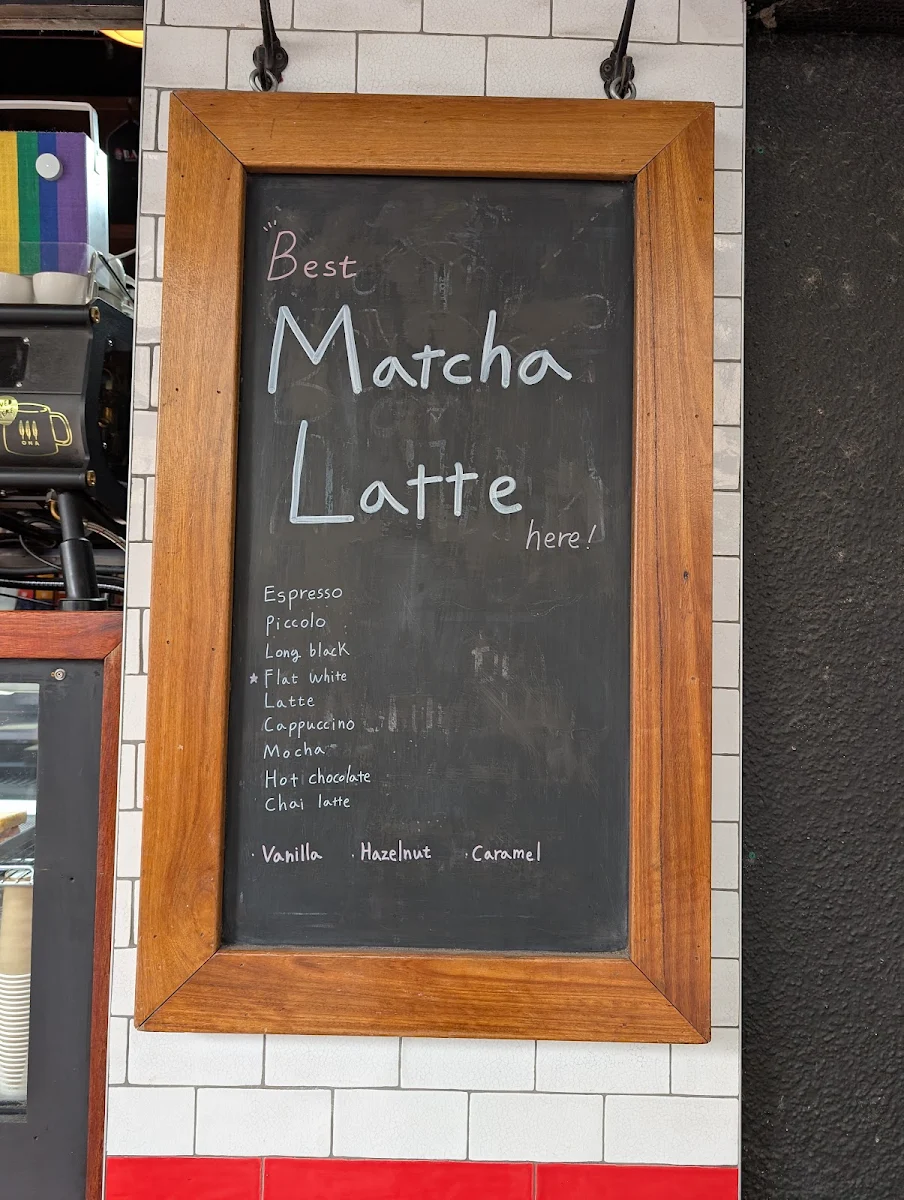 Best
Matcha
Latte
here!
Espresso
Piccolo
Long black
★ Flat White
Latte
Cappuccino
Mocha
Hot chocolate
Chai latte
· Vanilla · Hazelnut · Caramel
ONA